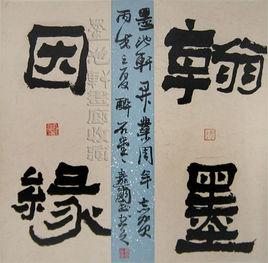 翰墨
墨池軒開業周年志賀
丙戌之夏醉石堂
因緣
墨池軒畫廊收藏